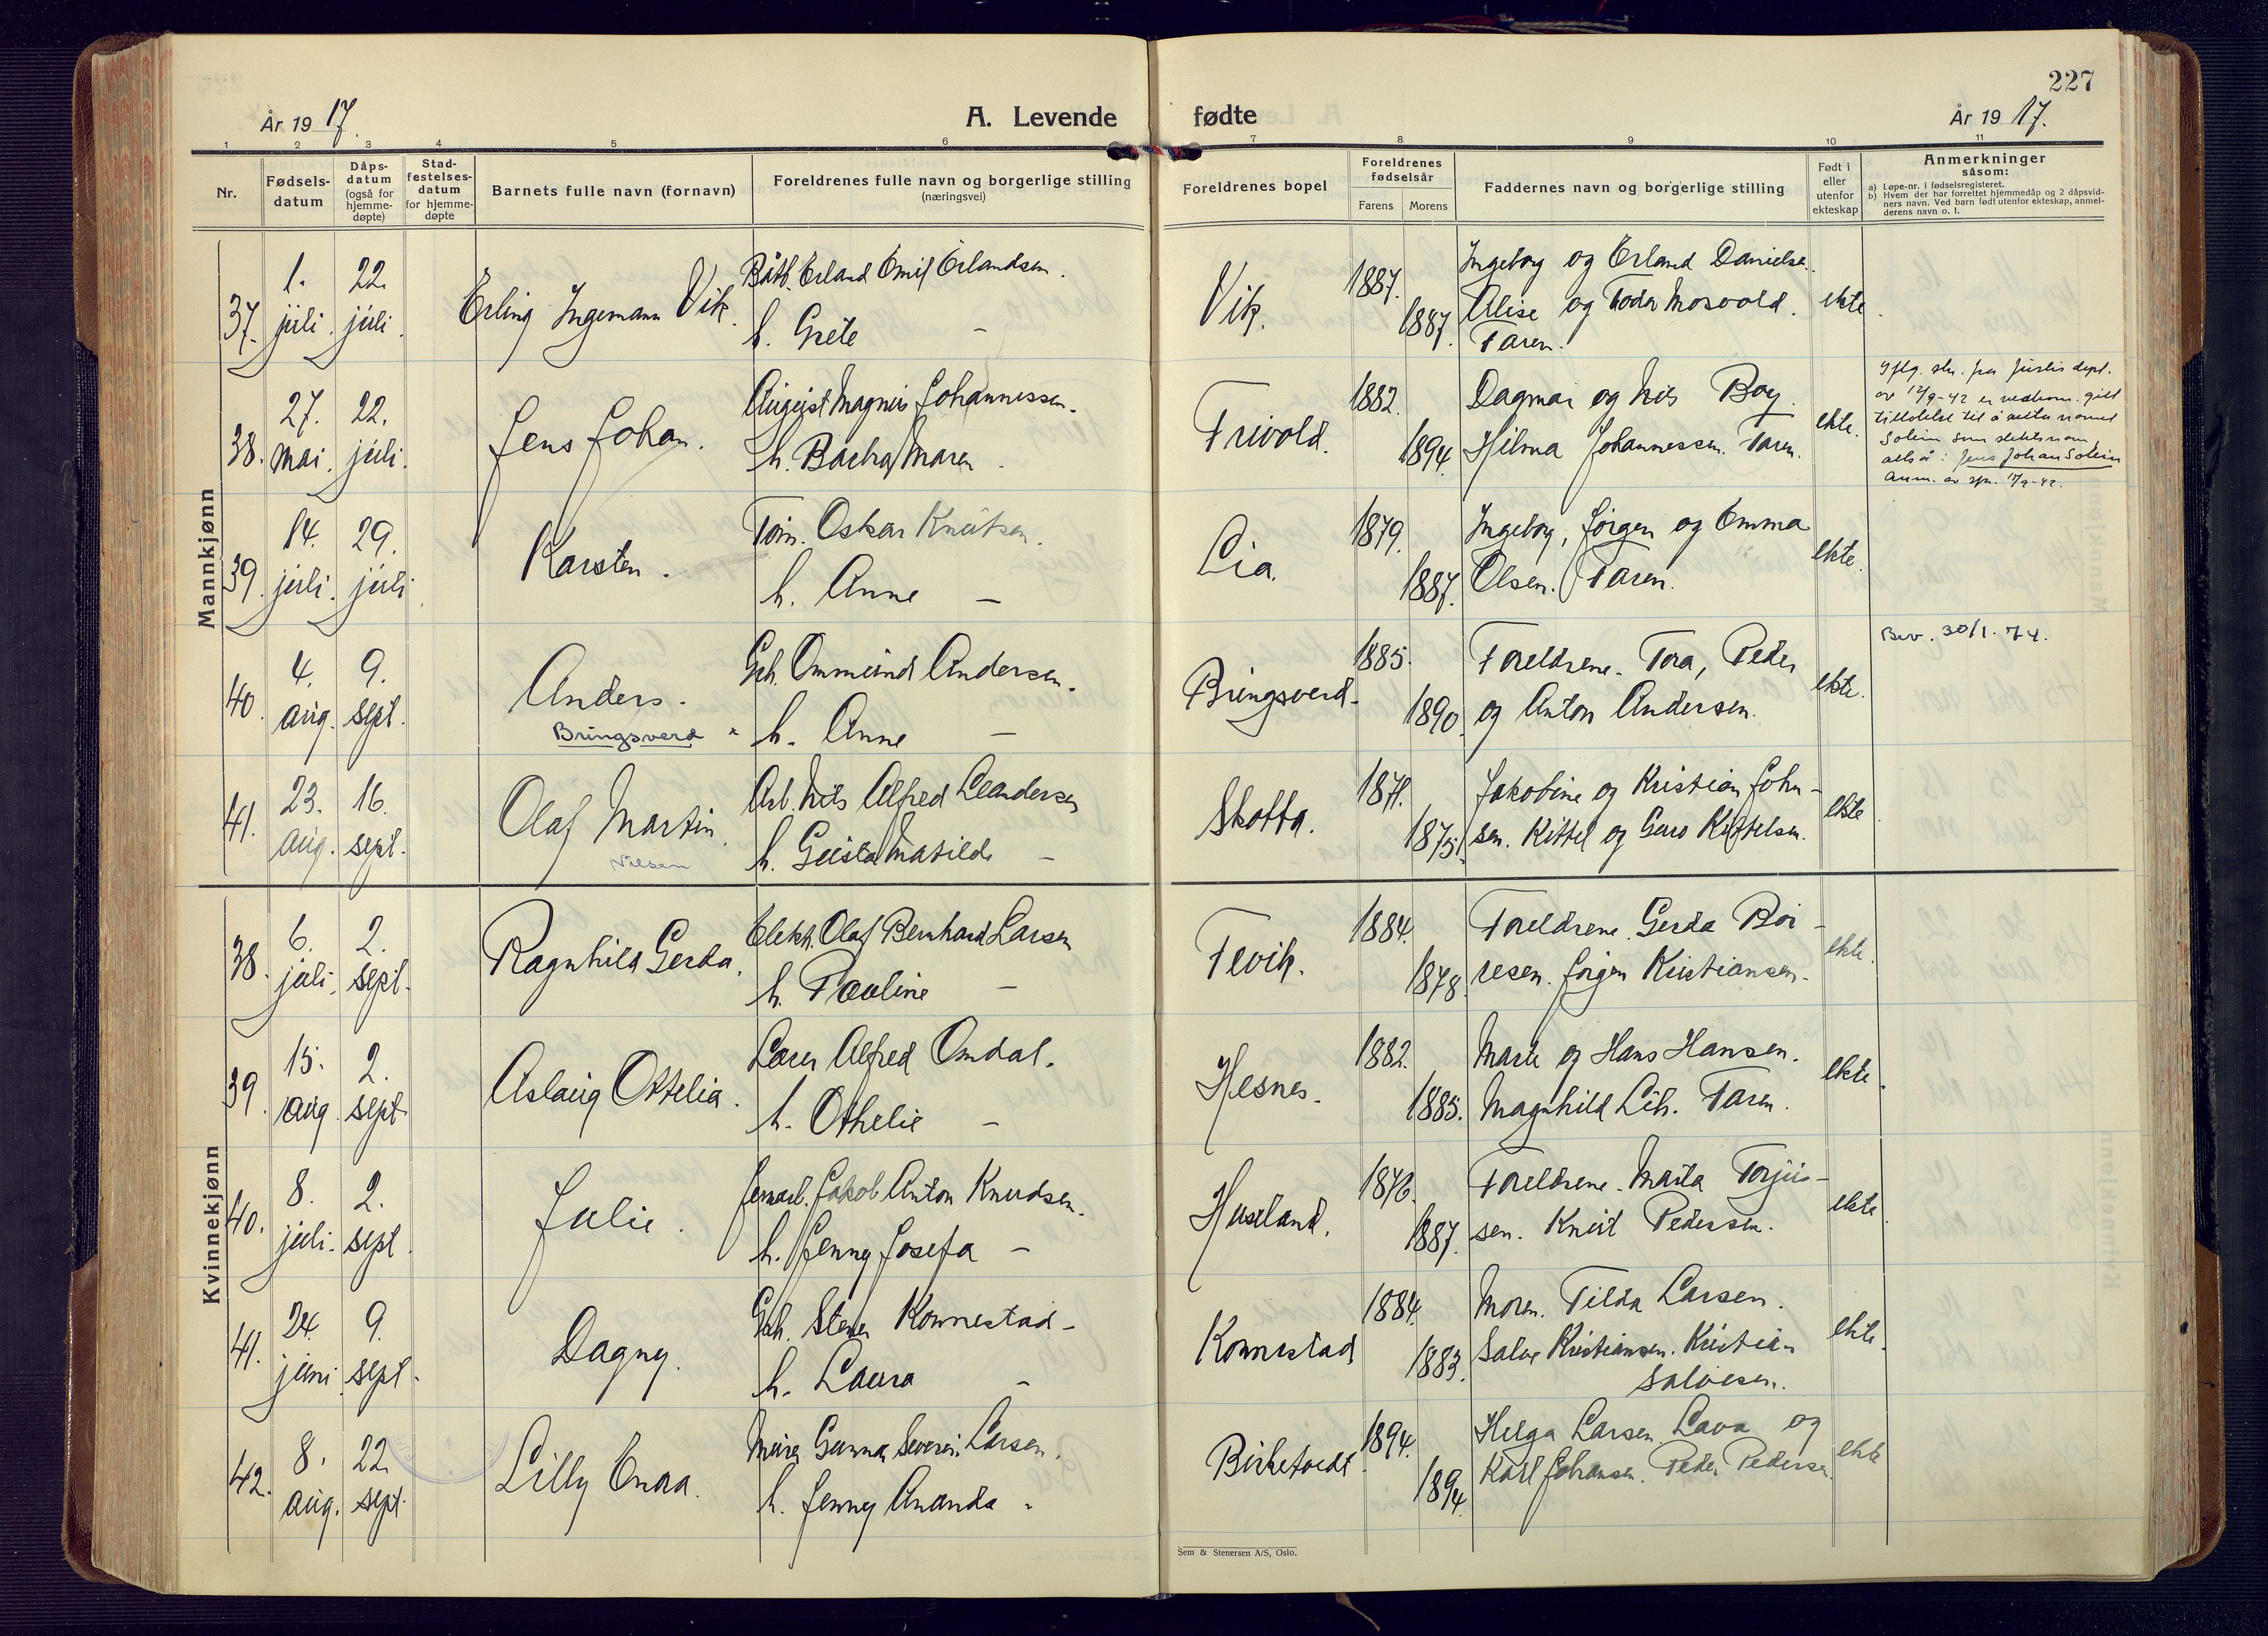 227
År 1917.
A. Levende fødte
År 1917.
1 2 3 4 5 6 7 8 9 10 11
Nr.
Fødsels-
datum
Dåps-
datum
(også for
hjemme-
døpte)
Stad-
festelses-
datum
for hjemme-
døpte
Barnets fulle navn (fornavn)
Foreldrenes fulle navn og borgerlige stilling
(næringsvei)
Foreldrenes bopel
Foreldrenes
fødselsår
Farens Morens
Faddernes navn og borgerlige stilling
Født i
eller
utenfor
ekteskap
Anmerkninger
såsom:
a) Løpe-nr. i fødselsregisteret.
b) Hvem der har forrettet hjemmedåp og 2 dåpsvid-
ners navn. Ved barn født utenfor ekteskap, anmel-
derens navn o. l.
Mannkjønn
37. 1. juli. 22. juli.
Erling Ingemann Vik.
Båtb. Erland Emil Erlandsen.
h. Grete —
Vik.
1887.
1887.
Ingeborg og Erland Danielsen.
Alise og Todor Mosvold.
Faren.
ekte.
38. 27. mai. 22. juli.
Jens Johan.
August Magnus Johannessen.
h. Barba Maren.
Frivold.
1882.
1894.
Dagmar og Nils Boy.
Hilma Johannessen. Faren.
ekte.
Iflg. skr. fra justis dept.
av 12/9-42 er vedkom. gitt
tillatelse til å anta navnet
Solein som slektsnavn,
altså: Jens Johan Solein
Anm. av spr. 17/9-42.
39. 14. juli. 29. juli.
Karsten.
Tøm. Oskar Knutsen.
h. Anne —
Lia.
1879.
1887.
Ingeborg, Jørgen og Emma
Olsen. Faren.
ekte.
40. 4. aug. 9. sept.
Anders.
Bringsverd
Gbr. Ommund Andersen.
h. Anne —
Bringsverd.
1885.
1890.
Foreldrene. Tora, Peder
og Anton Andersen.
ekte.
Bev. 30/1. 74.
41. 23. aug. 16. sept.
Olaf Martin.
Nilsen
Arb. Nils Alfred Leandersen
h. Gusta Matilde —
Skotta.
1871.
1875.
Jakobine og Kristian John-
sen. Kittel og Guro Kittelsen.
ekte.
Kvinnekjønn
38. 6. juli. 2. sept.
Ragnhild Gerda.
Elekt. Olaf Bernhard Larsen
h. Pauline —
Fevik.
1884.
1878.
Foreldrene. Gerda Bør-
resen. Jørgen Kristiansen.
ekte.
39. 15. aug. 2. sept.
Aslaug Ottelia.
Lærer Alfred Omdal.
h. Othelie —
Hesnes.
1882.
1885.
Marie og Hans Hansen.
Magnhild Lih. Faren.
ekte.
40. 8. juli. 2. sept.
Julie.
Jernarb. Jakob Anton Knudsen.
h. Jenny Josefa —
Huseland.
1876.
1887.
Foreldrene. Marta Torjus-
sen. Knut Pedersen.
ekte.
41. 24. juni. 9. sept.
Dagny.
Gbr. Stener Konnestad —
h. Laura —
Konnestad
1884.
1883.
Moren. Tilda Larsen.
Salve Kristiansen. Kristian
Salvesen.
ekte.
42. 8. aug. 22. sept.
Lilly Enaa.
Murer Gunnar Severin Larsen.
h. Jenny Ananda —
Birketvedt.
1894.
1894.
Helga Larsen. Lava og
Karl Johansen. Peder Pedersen.
ekte
Sem & Stenersen A/S, Oslo.